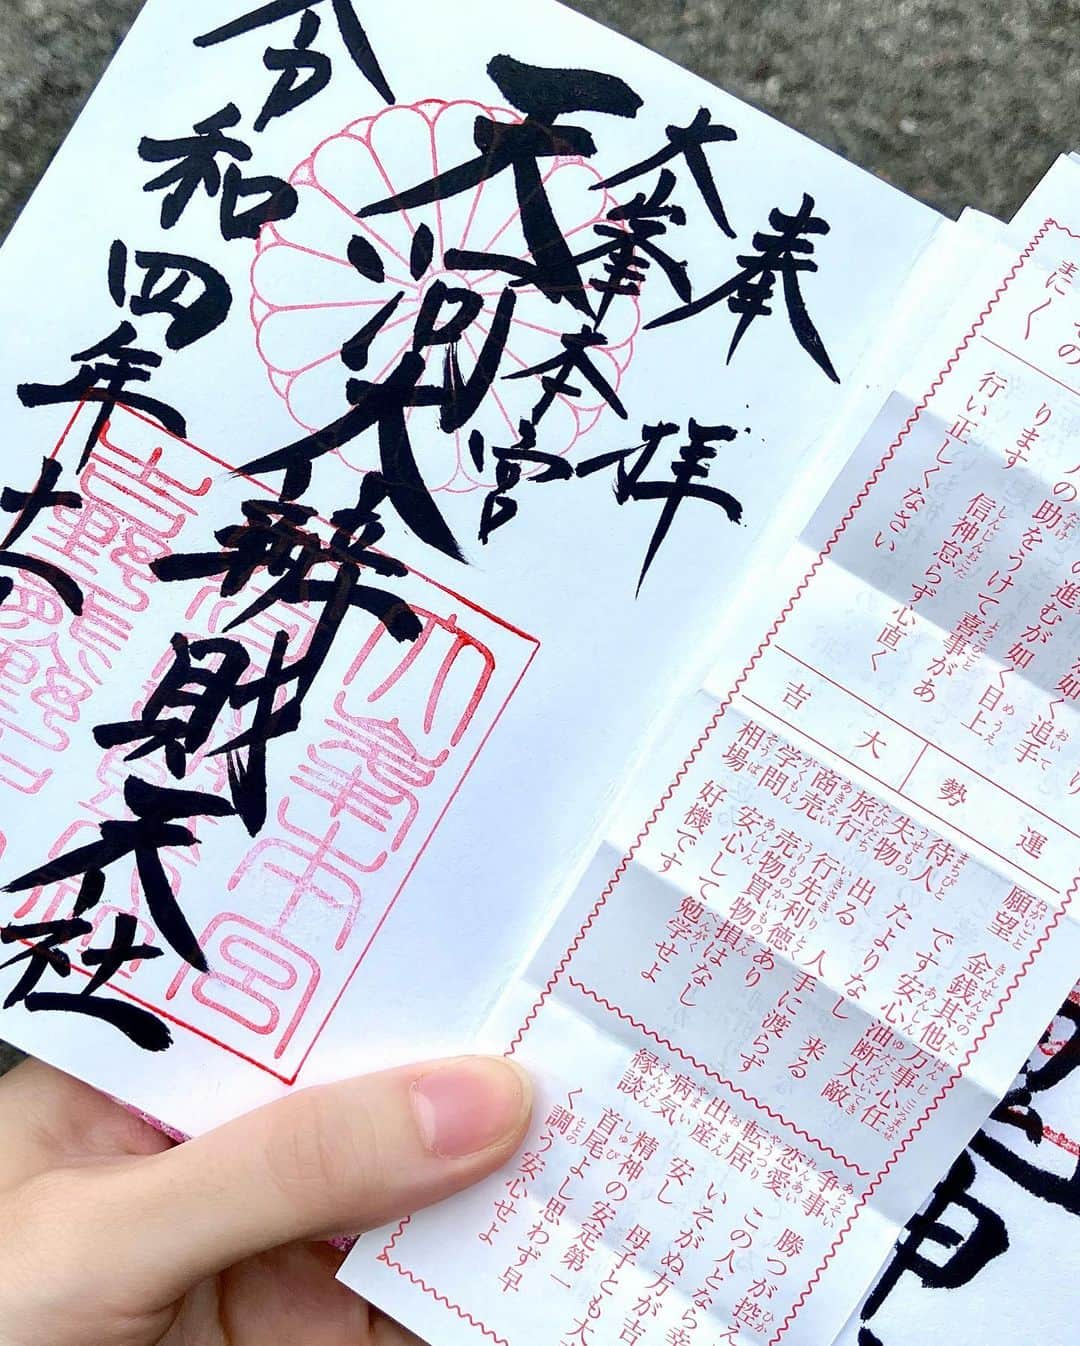 奉拝
大峯本宮
天河大辨財天社
令和四年
大峯本宮
まにく
追手
ります
の助をうけて喜事があ
の進むが如く目上
行い正しくなさい
信神怠らず心直く
運勢
大吉
願望 金銭其他万事心任
です安心油断大敵
待人 たよりなし 来る
失物 出る 人手に渡らず
旅行 行先利徳あり
商売 売物買物損はなし
学問 安心して勉学せよ
相場 好機です
争事 勝つが控え
恋愛 この人となら幸
転居 いそがぬ方が吉
出産 安し 母子とも大
病気 精神の安定第一
縁談 首尾よし思わず早
く調う安心せよ